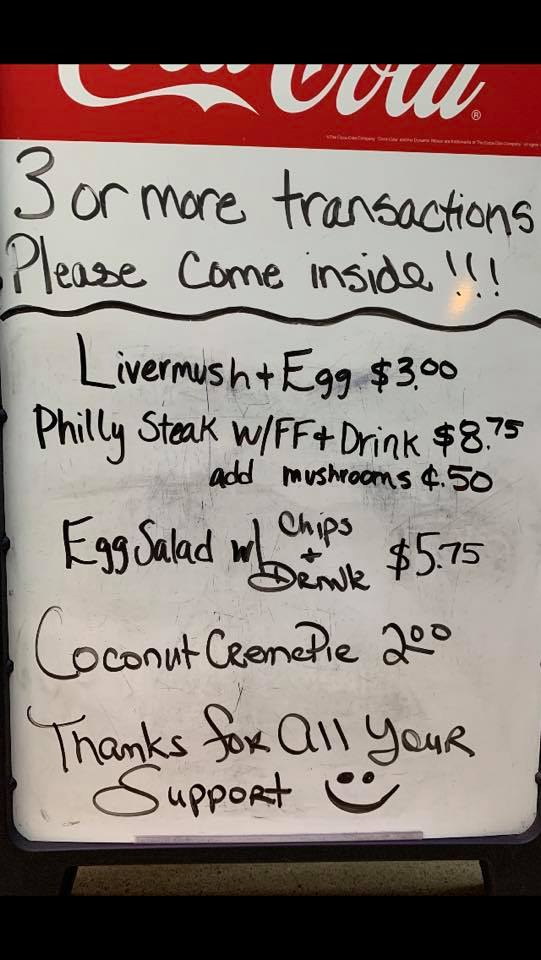 Coca-Cola®
3 or more transactions
Please Come inside!!!
Livermush + Egg $3.00
Philly Steak w/FF + Drink $8.75
add mushrooms ¢.50
Egg Salad w/ Chips + Drink $5.75
Coconut Creme Pie 2.00
Thanks for All Your
Support